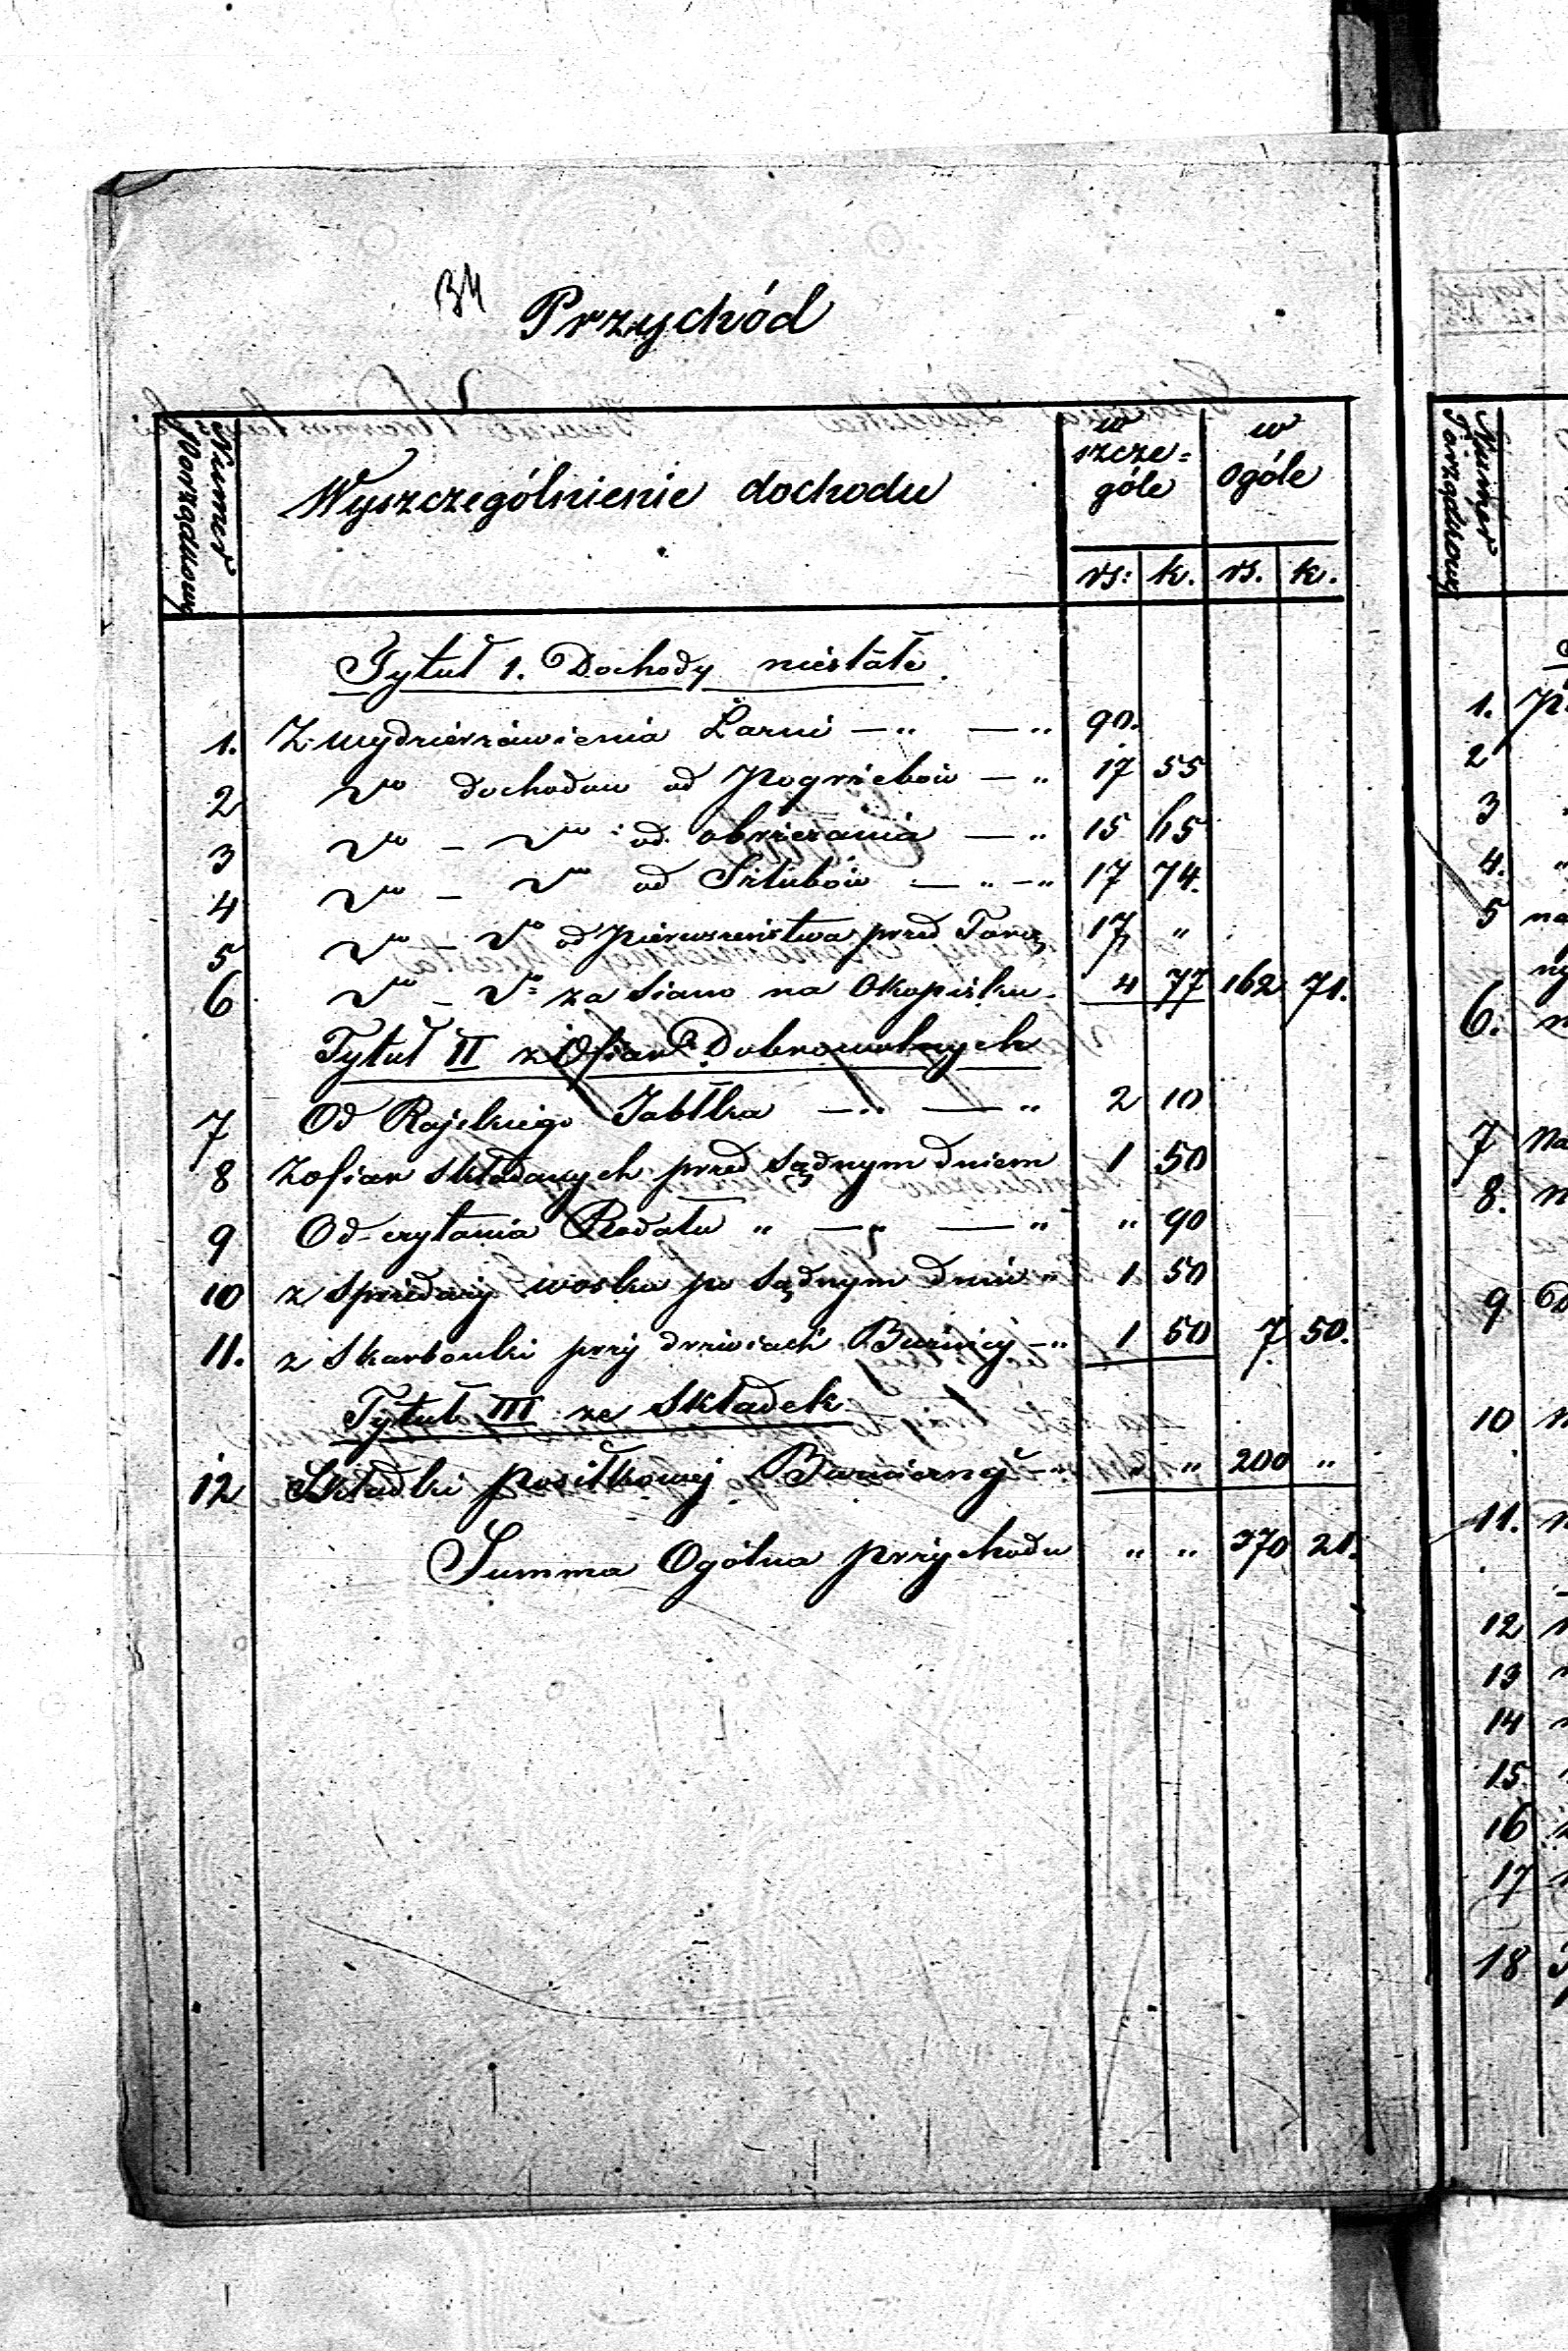 34
Przychód
Numer Porządkowy
Wyszczególnienie dochodu
w szcze=góle
w ogóle
rs: k. rs. k.
Tytuł 1. Dochody niestałe
1. Z wydzierżawienia Łazni — " — " 90.
2 dto dochodow od Pogrzebów — " 17 55
3 dto — dto od obrzezania — " 15 65
4 dto — dto od Szlubów — " — " 17 74.
5 dto — dto od pierwszeństwa przed Torą 17 "
6 dto — dto za siano na Okopisku 4 77 162 71.
Tytuł II z Ofiar Dobrowolnych
7 Od Rajskiego Jabłka — " — " 2 10
8 Z ofiar składanych przed sądnym dniem 1 50
9 Od czytania Rodału " — " — " " 90
10 z sprzedaży wosku po sądnym dniu " 1 50
11. z Skarbonki przy drzwiach Bużnicy — " 1 50 7 50.
Tytuł III ze Składek
12 Składki posiłkowej " " 200 "
Summa Ogólna przychodu " " 370 21.
Numer Porządkowy
1.
2
3
4.
5 na
6.
7 Na
8.
9
10
11.
12
13
14
15
16
17
18